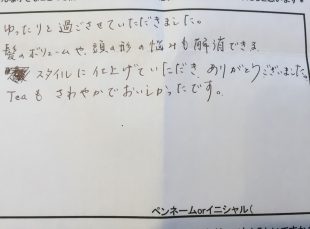 ゆったりと過ごさせていただきました。
髪のボリュームや、頭の形の悩みも解消できる
スタイルに仕上げていただき、ありがとうございました。
Teaもさわやかでおいしかったです。
ペンネームorイニシャル(